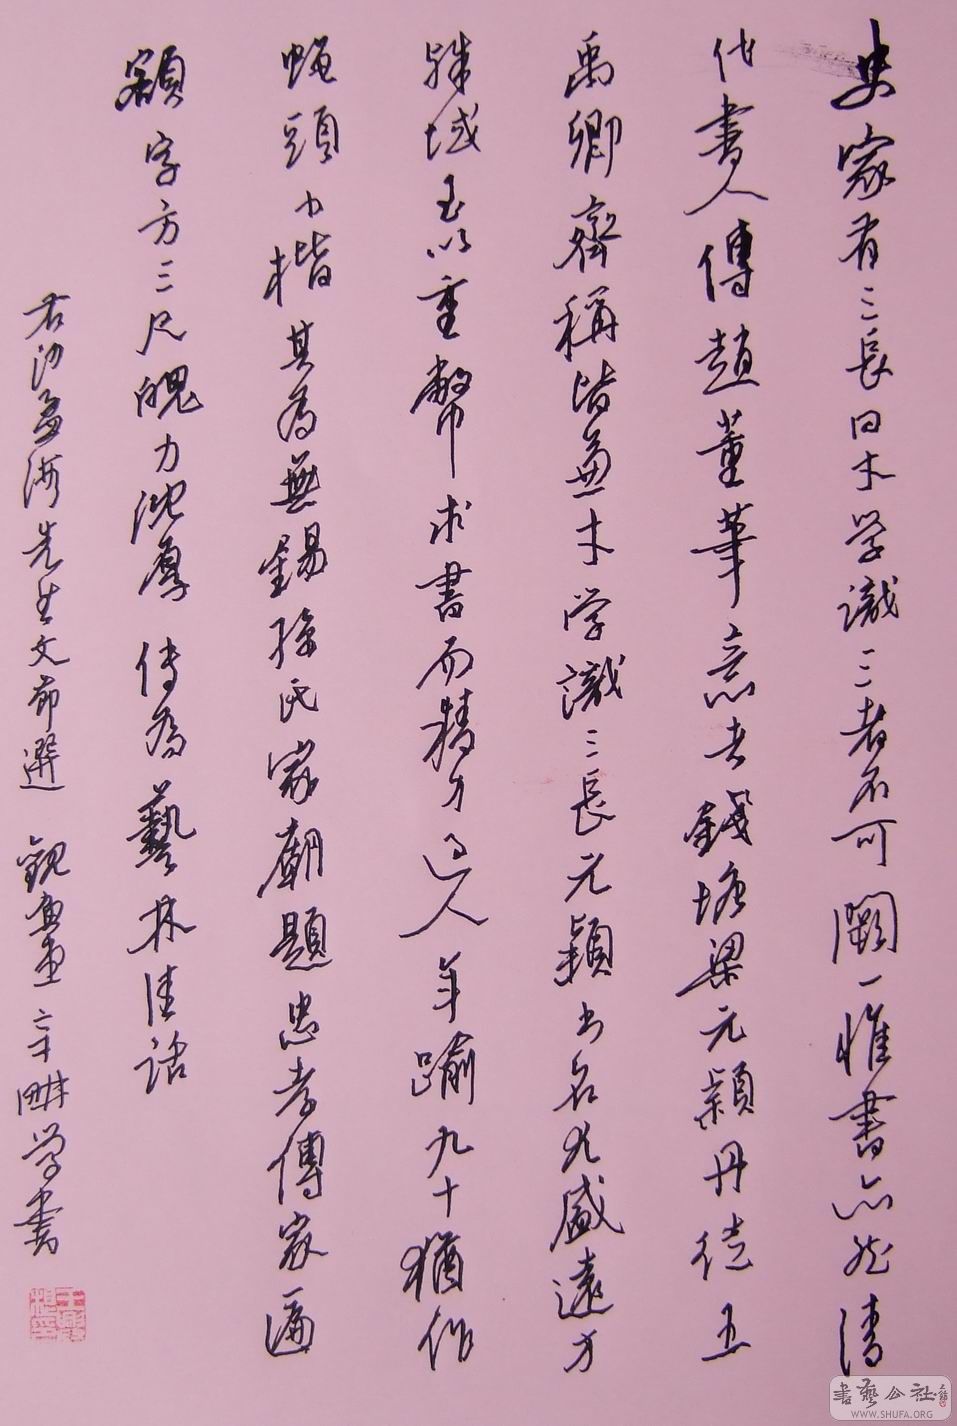 史家有三長曰才学識三者不可闕一惟書亦然清
代書人傳趙董筆意者錢塘梁元穎丹徒王
禹卿齊稱皆兼才学識三長元穎書名尤盛遠方
殊域至以重幣求書而精力過人年踰九十猶作
蝇頭小楷其為無錫孫氏家廟題忠孝傳家匾
額字方三尺魄力沈厚傳為藝林佳話
右沙孟海先生文節選 観魚画 辛畊学書
書藝公社
WWW.SHUFA.ORG